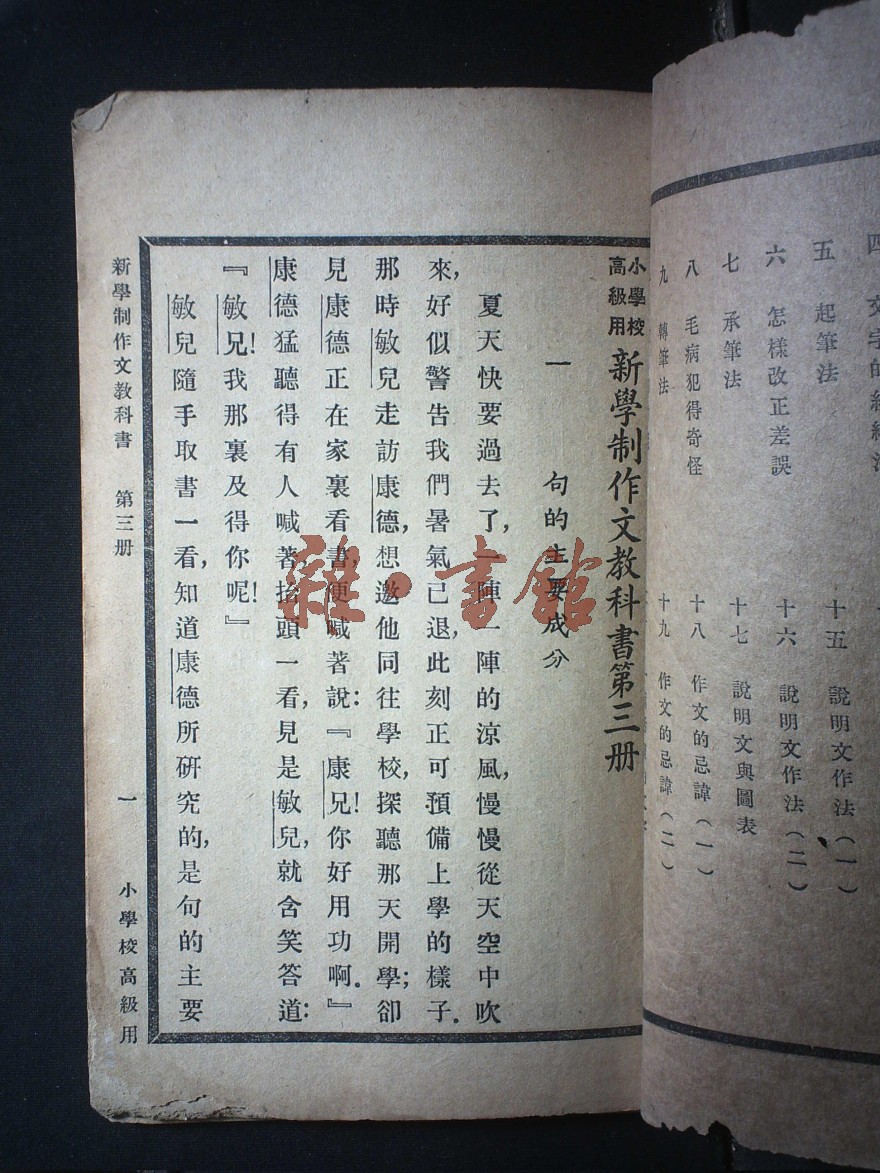 四 文字的
五 起筆法
十五 說明文作法(一)
六 怎樣改正差誤
十六 說明文作法(二)
七 承筆法
十七 說明文與圖表
八 毛病犯得奇怪
十八 作文的忌諱(一)
九 轉筆法
十九 作文的忌諱(二)
小學校高級用 新學制作文教科書第三册
一 句的主要成分
夏天快要過去了,一陣一陣的涼風,慢慢從天空中吹
來,好似警告我們暑氣已退,此刻正可預備上學的樣子。
那時敏兒走訪康德,想邀他同往學校,探聽那天開學;卻
見康德正在家裏看書,便喊著說:『康兄!你好用功啊。』
康德猛聽得有人喊著,抬頭一看,見是敏兒,就含笑答道:
『敏兄!我那裏及得你呢!』
敏兒隨手取書一看,知道康德所研究的,是句的主要
新學制作文教科書 第三册 一 小學校高級用
雜·書館